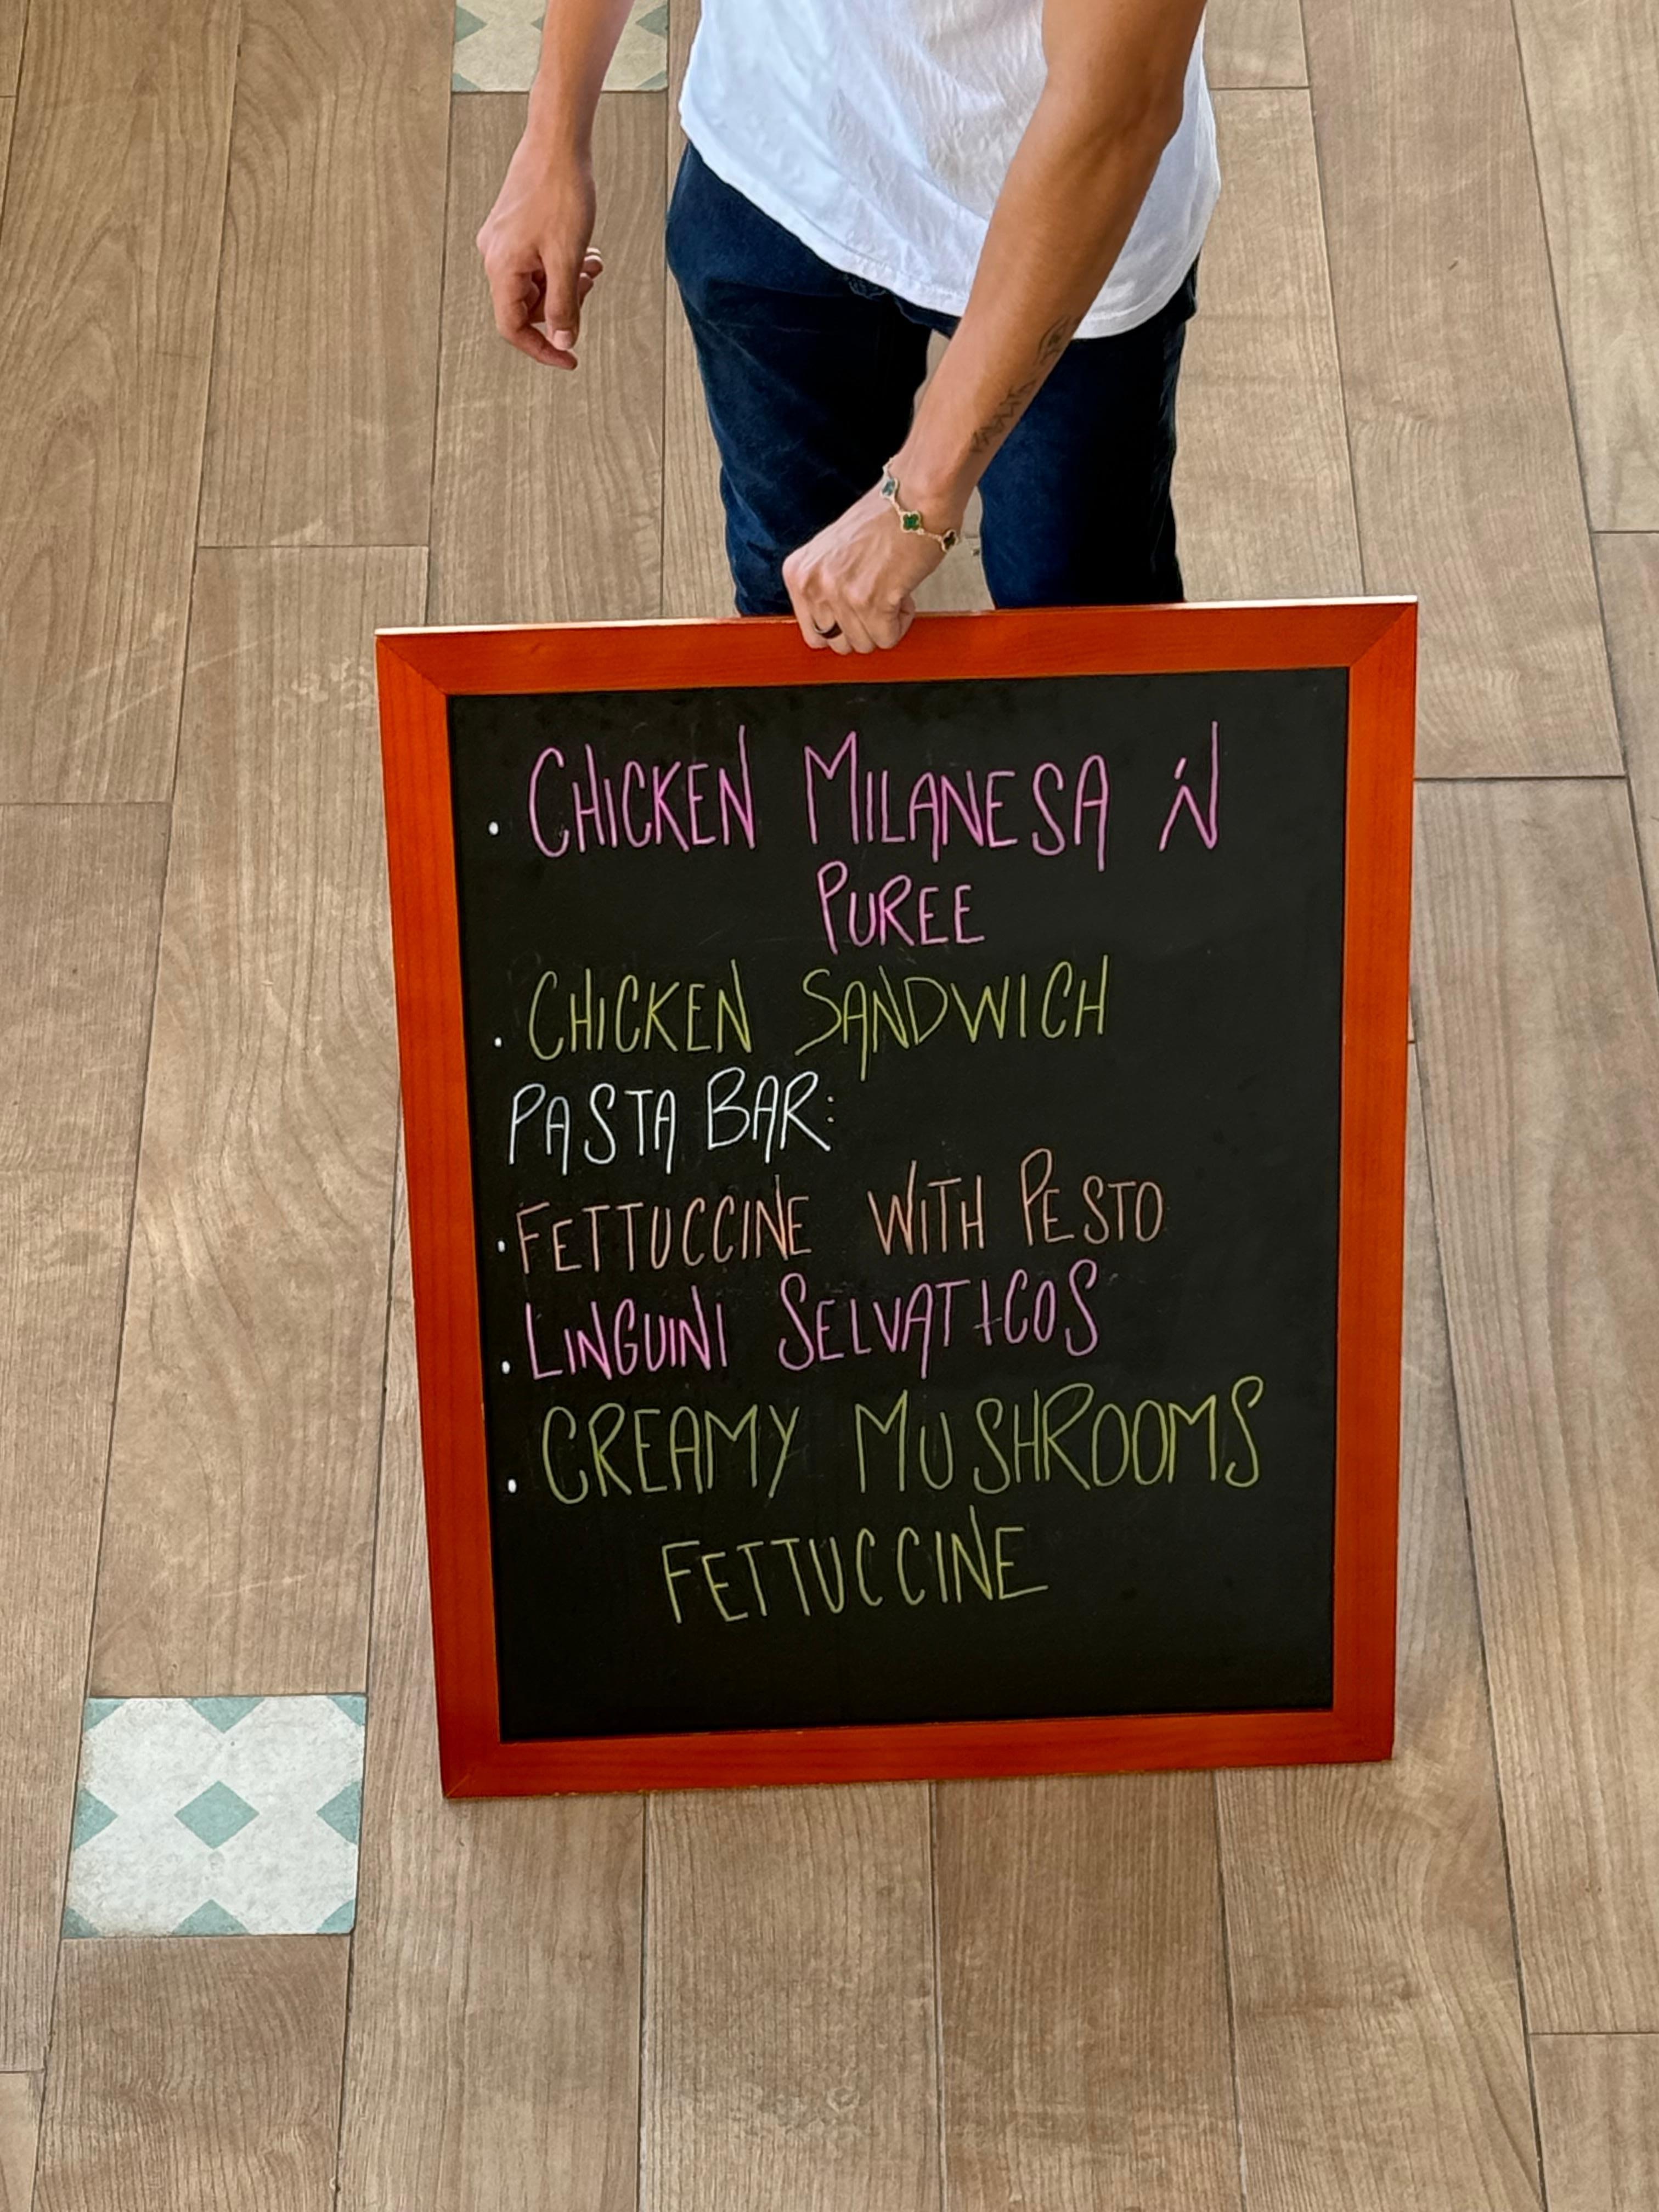 . CHICKEN MILANESA 'N
PUREE
. CHICKEN SANDWICH
PASTA BAR:
. FETTUCCINE WITH PESTO
. LINGUINI SELVATICOS
. CREAMY MUSHROOMS
FETTUCCINE